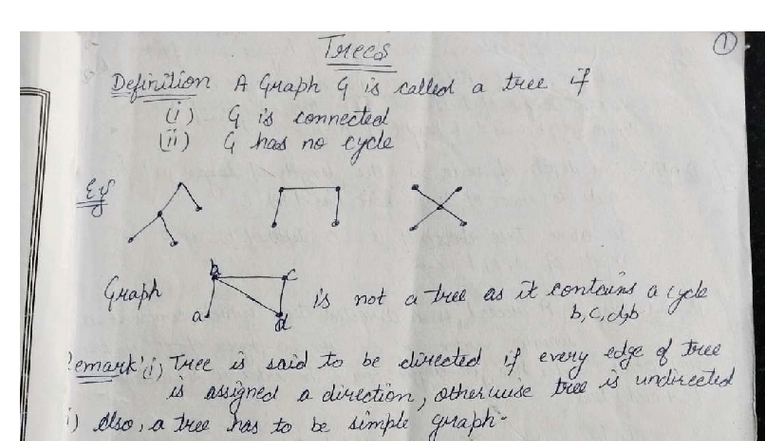 Trees
①
Definition A Graph G is called a tree if
(i) G is connected
(ii) G has no cycle
Eg
b c
a d
Graph is not a tree as it contains a cycle
b, c, d, b
emark: (i) Tree is said to be directed if every edge of tree
is assigned a direction, otherwise tree is undirected
i) Also, a tree has to be simple graph.